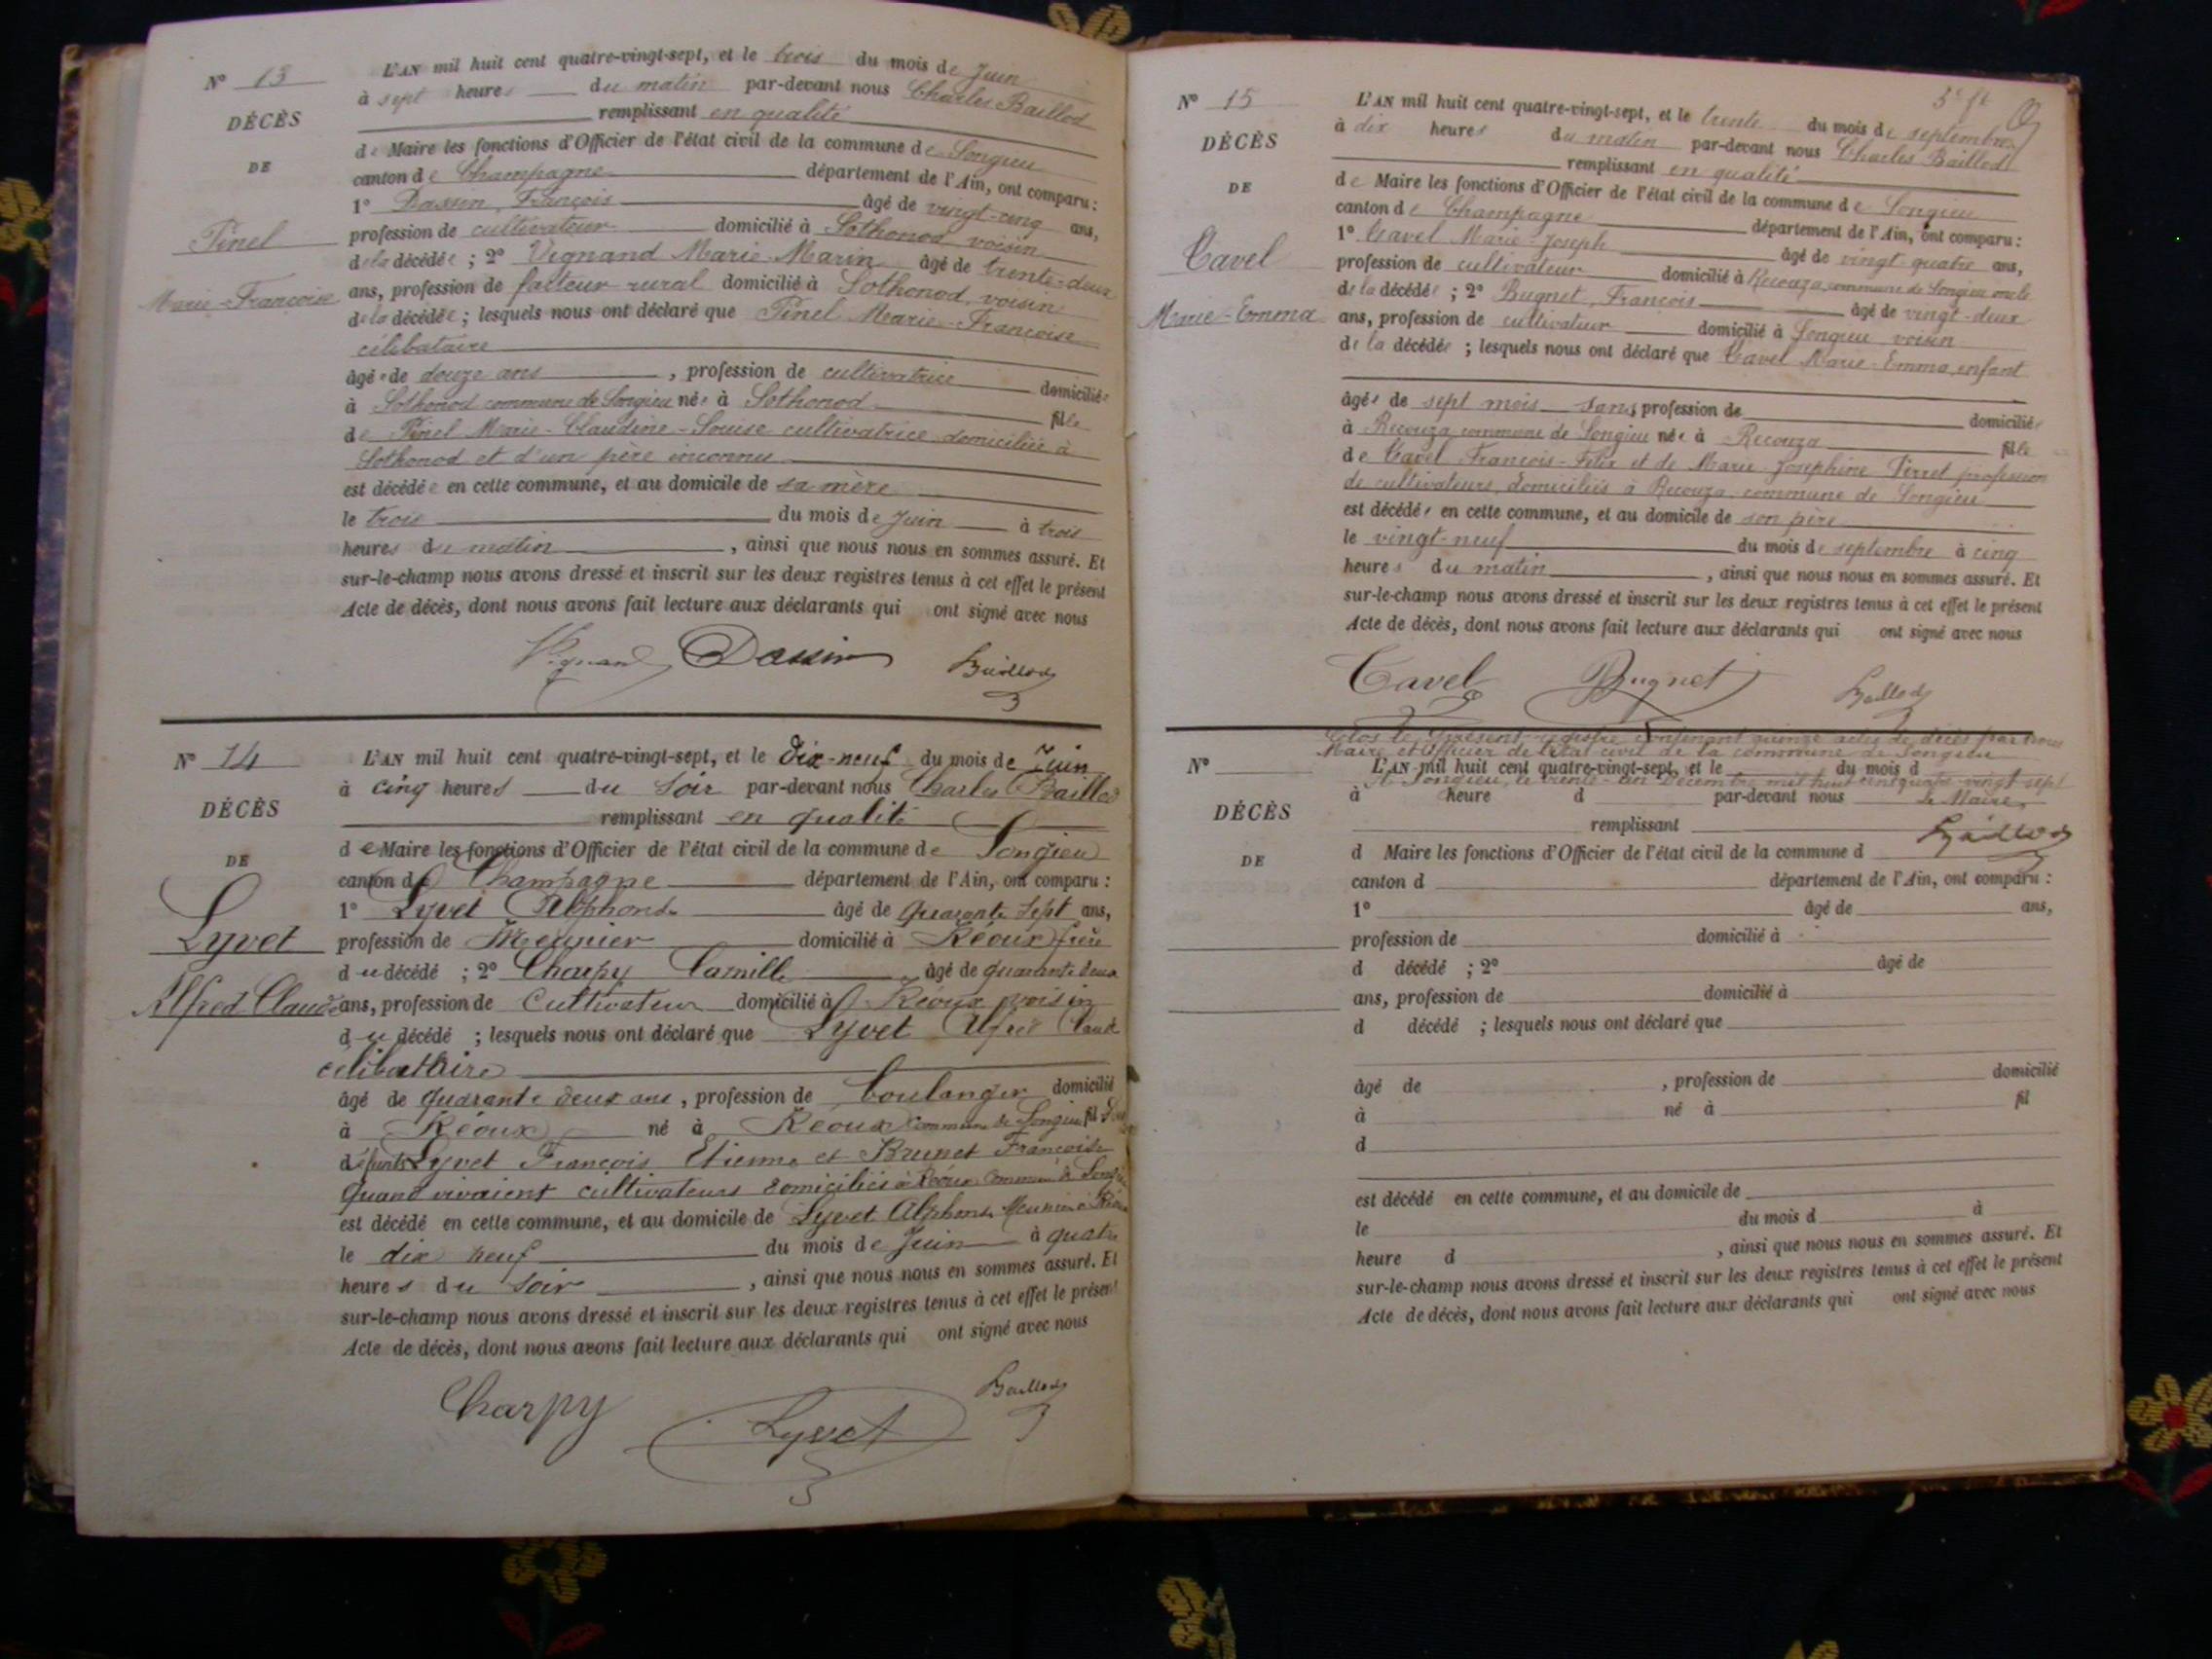 N° 13
DÉCÈS
DE
Pinel
Marie-Françoise
L'AN mil huit cent quatre-vingt-sept, et le trois du mois de Juin
à sept heures du matin par-devant nous Charles Baillod
remplissant en qualité
de Maire les fonctions d'Officier de l'état civil de la commune de Songieu
canton de Champagne département de l'Ain, ont comparu :
1° Dassin, François âgé de vingt-cinq ans,
profession de cultivateur domicilié à Sothonod voisin
de la décédée ; 2° Vignand Marie Marin âgé de trente-deux
ans, profession de facteur rural domicilié à Sothonod, voisin
de la décédée ; lesquels nous ont déclaré que Pinel Marie-Françoise
célibataire
âgée de douze ans , profession de cultivatrice domiciliée
à Sothonod commune de Songieu née à Sothonod fille
de Pinel Marie-Claudine-Louise cultivatrice domiciliée à
Sothonod et d'un père inconnu
est décédée en cette commune, et au domicile de sa mère
le trois du mois de Juin à trois
heures du matin , ainsi que nous nous en sommes assuré. Et
sur-le-champ nous avons dressé et inscrit sur les deux registres tenus à cet effet le présent
Acte de décès, dont nous avons fait lecture aux déclarants qui ont signé avec nous
Vignand Dassin Baillod
N° 14
DÉCÈS
DE
Lyvet
Alfred Claude
L'AN mil huit cent quatre-vingt-sept, et le Dix-neuf du mois de Juin
à cinq heures du Soir par-devant nous Charles Baillod
remplissant en qualité
de Maire les fonctions d'Officier de l'état civil de la commune de Songieu
canton de Champagne département de l'Ain, ont comparu :
1° Lyvet Alphonse âgé de Quarante Sept ans,
profession de Meunier domicilié à Réoux frère
du décédé ; 2° Charpy Camille âgé de quarante deux
ans, profession de Cultivateur domicilié à Réoux voisin
du décédé ; lesquels nous ont déclaré que Lyvet Alfred Claude
célibataire
âgé de quarante deux ans , profession de boulanger domicilié
à Réoux né à Réoux commune de Songieu fil
défunts Lyvet François Etienne et Brunet Françoise
Quand vivaient cultivateurs domiciliés à Réoux Commune de Songieu
est décédé en cette commune, et au domicile de Lyvet Alphonse Meunier à Réoux
le dix neuf du mois de Juin à quatre
heures du Soir , ainsi que nous nous en sommes assuré. Et
sur-le-champ nous avons dressé et inscrit sur les deux registres tenus à cet effet le présent
Acte de décès, dont nous avons fait lecture aux déclarants qui ont signé avec nous
Charpy Lyvet Baillod
N° 15
DÉCÈS
DE
Cavel
Marie-Emma
L'AN mil huit cent quatre-vingt-sept, et le trente du mois de septembre
à dix heures du matin par-devant nous Charles Baillod
remplissant en qualité
de Maire les fonctions d'Officier de l'état civil de la commune de Songieu
canton de Champagne département de l'Ain, ont comparu :
1° Cavel Marie-Joseph âgé de vingt-quatre ans,
profession de cultivateur domicilié à Recouza, commune de Songieu oncle
de la décédée ; 2° Bugnet, François âgé de vingt-deux
ans, profession de cultivateur domicilié à Songieu voisin
de la décédée ; lesquels nous ont déclaré que Cavel Marie-Emma, enfant
âgée de sept mois sans profession de domiciliée
à Recouza commune de Songieu née à Recouza fille
de Cavel François-Félix et de Marie Joséphine Pirret profession
de cultivateurs, domiciliés à Recouza commune de Songieu
est décédée en cette commune, et au domicile de son père
le vingt-neuf du mois de septembre à cinq
heures du matin , ainsi que nous nous en sommes assuré. Et
sur-le-champ nous avons dressé et inscrit sur les deux registres tenus à cet effet le présent
Acte de décès, dont nous avons fait lecture aux déclarants qui ont signé avec nous
Cavel Bugnet Baillod
Clos le présent registre contenant quinze actes de décès par nous
Maire et Officier de l'état civil de la commune de Songieu
A Songieu, le trente-un Décembre mil huit cent quatre-vingt-sept
Le Maire,
Baillod
N°
DÉCÈS
DE
L'AN mil huit cent quatre-vingt-sept, et le du mois d
à heure d par-devant nous
remplissant
d Maire les fonctions d'Officier de l'état civil de la commune d
canton d département de l'Ain, ont comparu :
1° âgé de ans,
profession de domicilié à
d décédé ; 2° âgé de
ans, profession de domicilié à
d décédé ; lesquels nous ont déclaré que
âgé de , profession de domicilié
à né à fil
d
est décédé en cette commune, et au domicile de
le du mois d à
heure d , ainsi que nous nous en sommes assuré. Et
sur-le-champ nous avons dressé et inscrit sur les deux registres tenus à cet effet le présent
Acte de décès, dont nous avons fait lecture aux déclarants qui ont signé avec nous